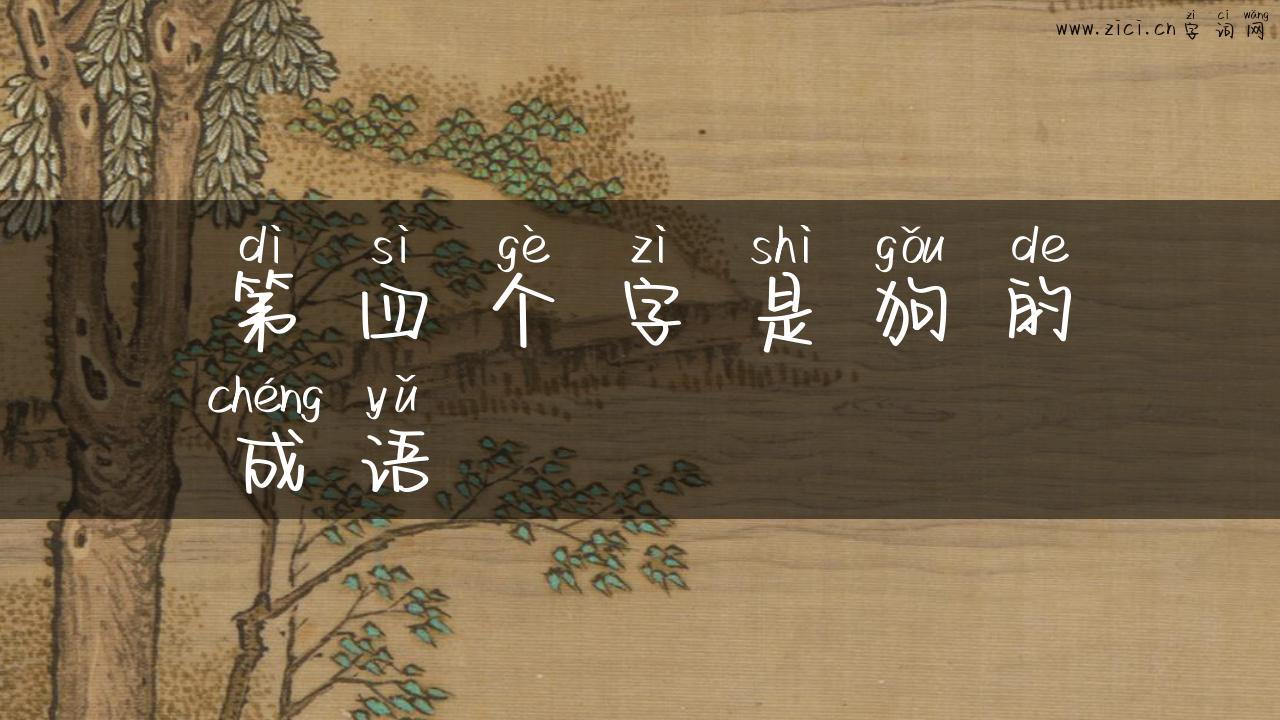 zì cí wǎng
www.zici.cn 字词网
dì sì gè zì shì gǒu de
第四个字是狗的
chéng yǔ
成语